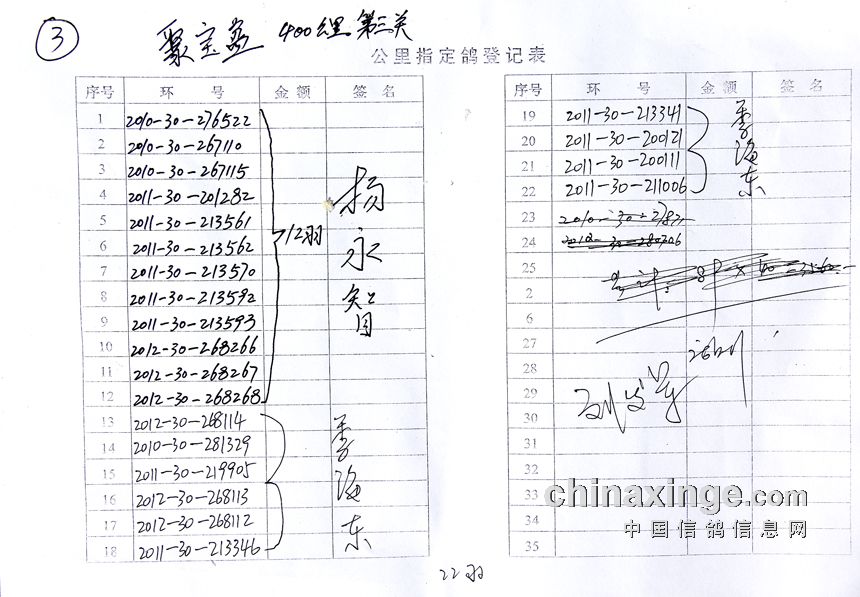 3
聚宝盆 400公里第三关
公里指定鸽登记表
序号 环 号 金额 签名
1 2010-30-276522
2 2010-30-267110
3 2010-30-267115
4 2011-30-201282
5 2011-30-213561
6 2011-30-213562
7 2011-30-213570
8 2011-30-213592
9 2011-30-213593
10 2012-30-268266
11 2012-30-268267
12 2012-30-268268
12羽
杨永智
13 2012-30-268114
14 2010-30-281329
15 2011-30-219905
16 2012-30-268113
17 2012-30-268112
18 2011-30-213346
李海东
序号 环 号 金额 签名
19 2011-30-213341
20 2011-30-200121
21 2011-30-200111
22 2011-30-211006
李海东
23
24
25
2
6
27
28
29
30
31
32
33
34
35
22羽
chinaxinge.com
中国信鸽信息网